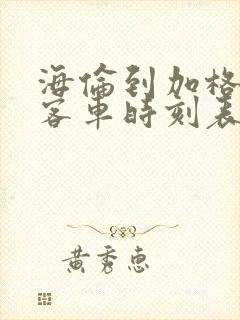 海倫到加格
客車時刻表
黃秀惠